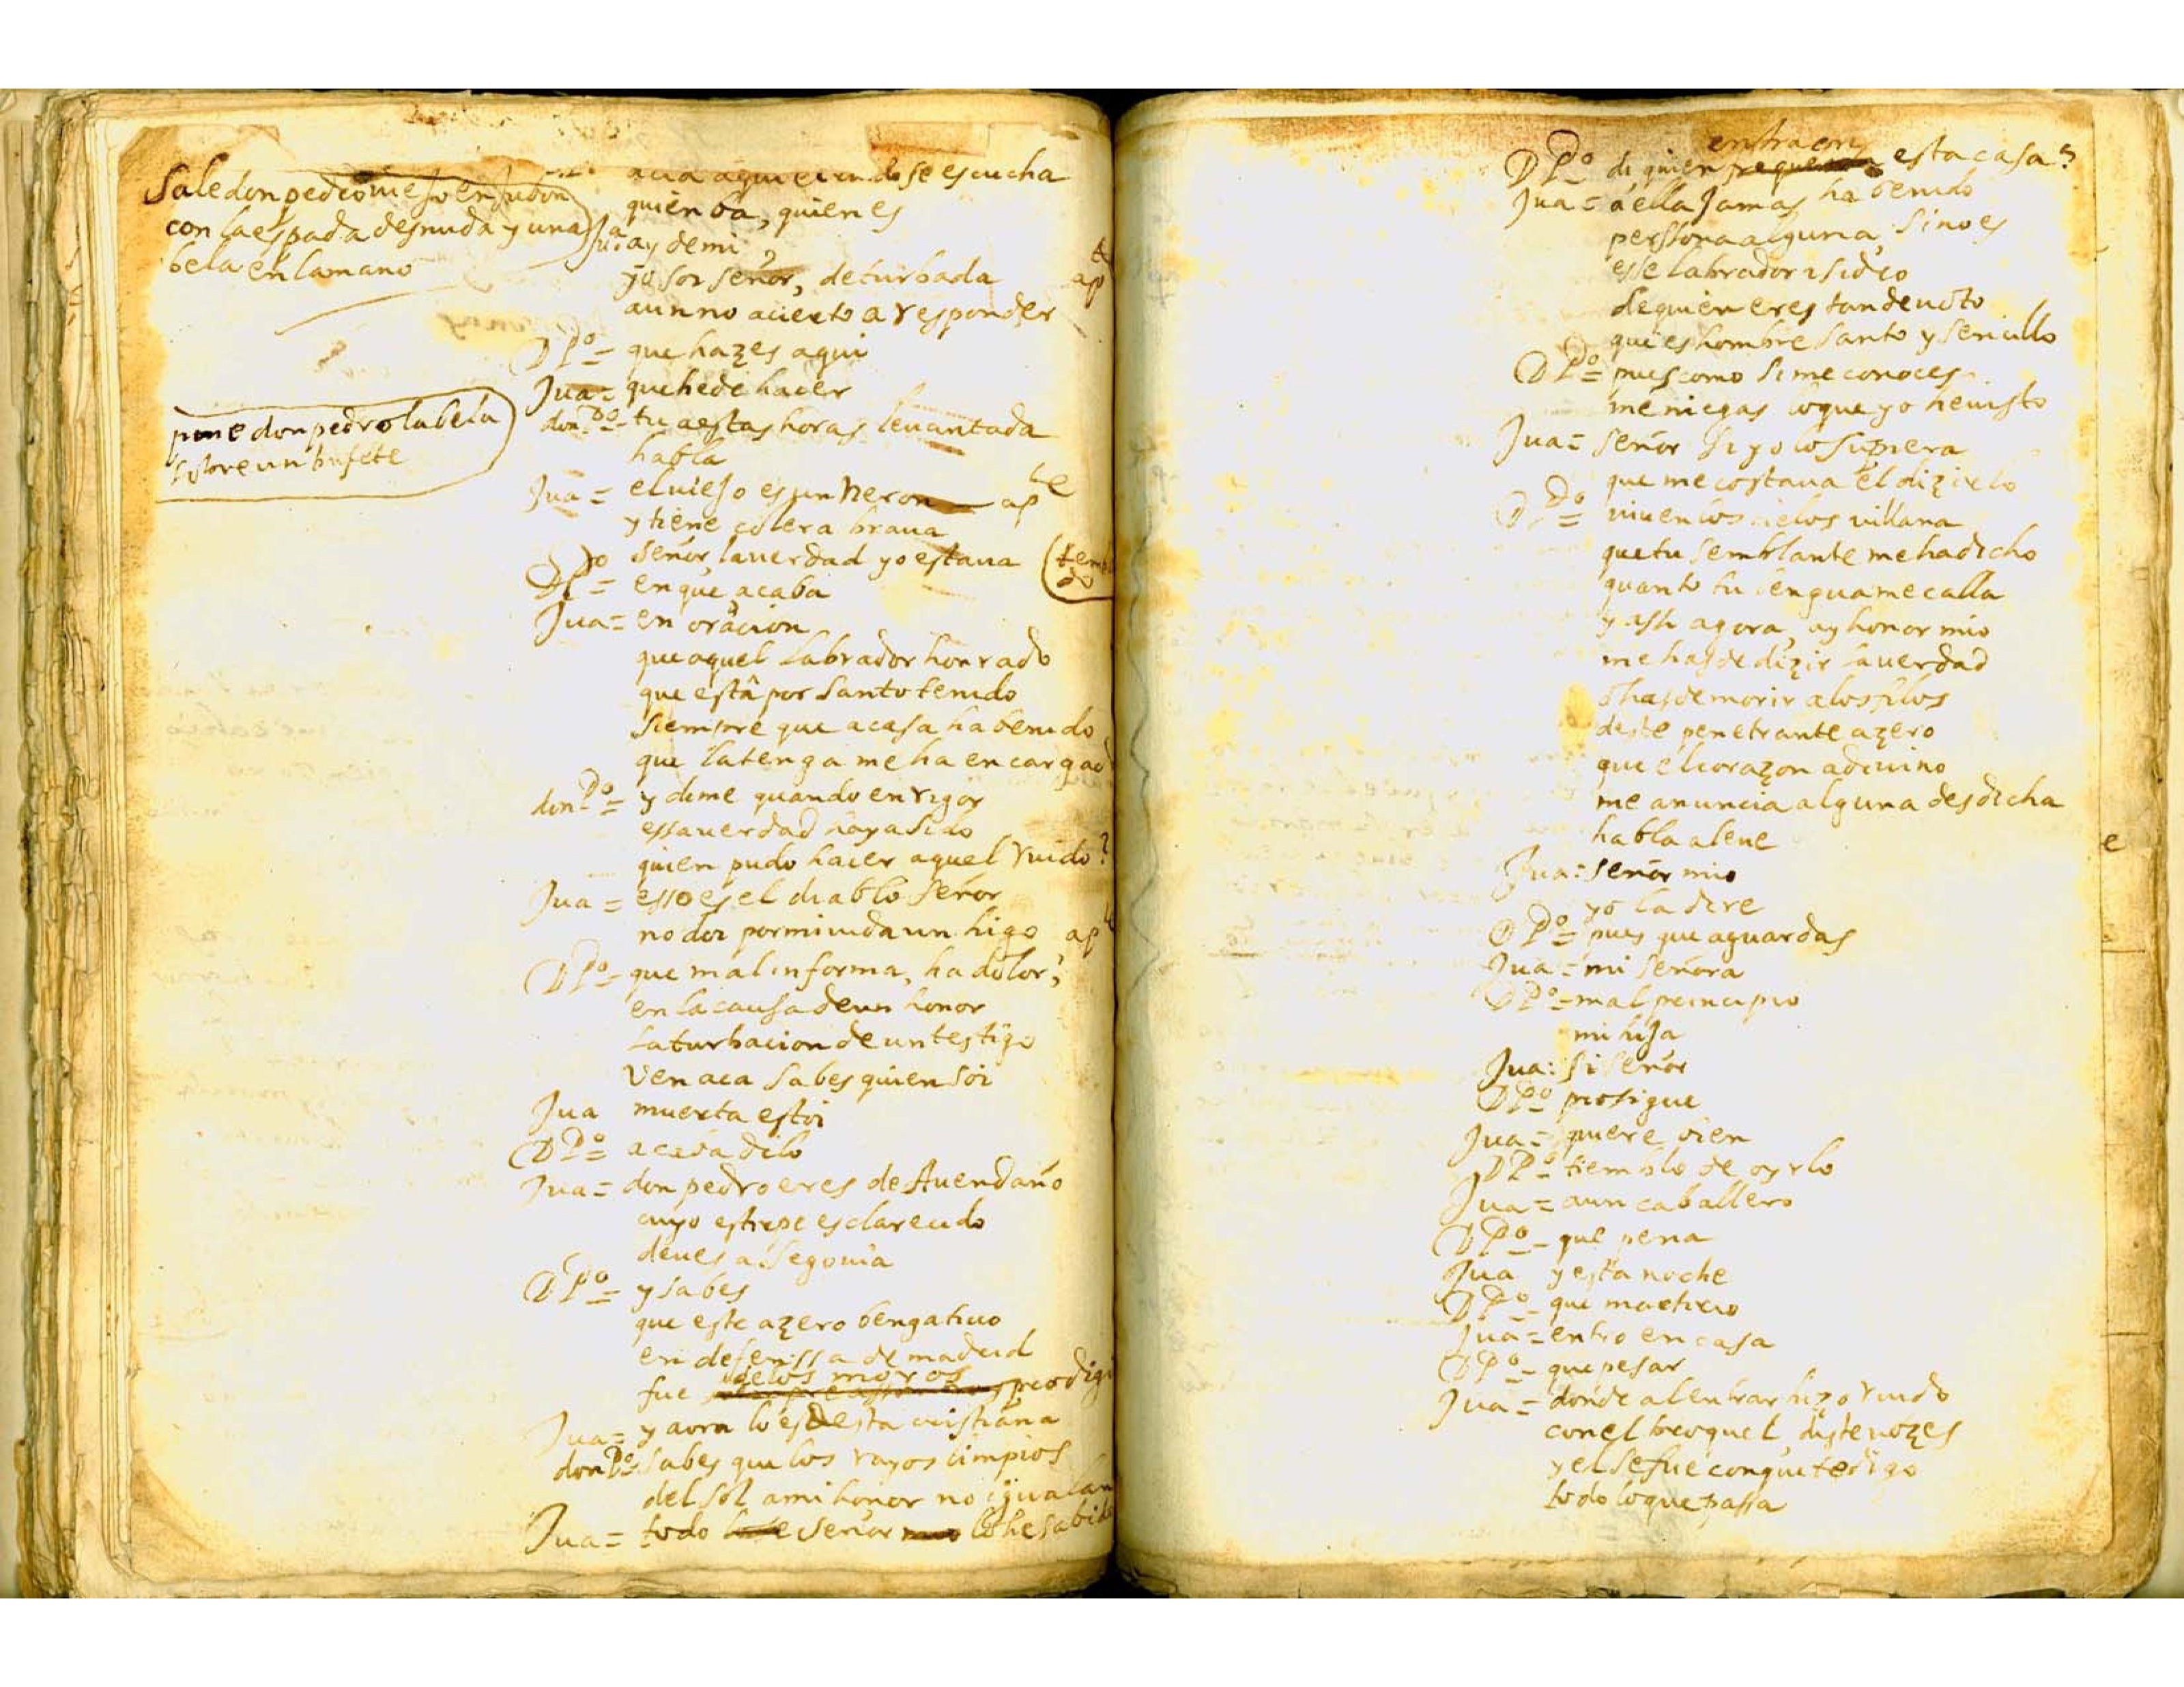 Sale don pedro viejo en jubon
con la espada desnuda y una
bela en la mano
acia aqui el ruido se escucha
quien ba, quien es
Jua ay de mi
yo soi señor, de turbada apte
aun no acierto a responder
D Po = que hazes aqui
Jua = que he de hacer
don Po = tu a estas horas leuantada
habla
pone don pedro la bela
sobre un bufete
Jua = el viejo es un Neron apte
y tiene colera braua
señor, la uerdad yo estaua
D Po = en que, acaba
Jua = en oracion
que aquel labrador honrado
que està por santo tenido
siempre que a casa ha benido
que la tenga me ha encargad
don Po = y dime quando en rigor
essa uerdad haya sido
quien pudo hacer aquel ruido?
Jua = esso es el diablo señor
no doi por mi uida un higo apte
D Po = que mal informa, ha dolor,
en la causa de un honor
la turbacion de un testigo
Ven aca sabes quien soi
Jua muerta estoi
D Po = acava dilo
Jua = don pedro eres de Auendaño
cuyo estirpe esclarecido
deues a Segouia
D Po = y sabes
que este azero bengatiuo
en defenssa de madrid
de los moros
fue prodigi
Jua = y aora lo es desta cristiana
don Po = sabes que los rayos limpios
del sol a mi honor no igualan
Jua = todo señor lo he sabido
entra en
D Po = di quien esta casa?
Jua = a ella Jamas ha benido
persona alguna, sino es
esse labrador isidro
de quien eres tan deuoto
que es hombre santo y sencillo
D Po = pues como si me conoces
me niegas lo que yo he uisto
Jua = señor si yo lo supiera
que me costaua el dizirlo
D Po = viuen los cielos villana
que tu semblante me ha dicho
quanto tu lengua me calla
y assi agora, ay honor mio
me has de dizir la uerdad
o has de morir a los filos
deste penetrante azero
que el corazon adiuino
me anuncia alguna desdicha
habla aleue
Jua: señor mio
yo la dire
D Po = pues que aguardas
Jua = mi señora
D Po = mal principio
mi hija
Jua: si señor
D Po prosigue
Jua = quiere bien
D Po = tiemblo de oyrlo
Jua = a un caballero
D Po = que pena
Jua y esta noche
D Po = que martirio
Jua = entro en casa
D Po = que pesar
Jua = donde al entrar hizo ruido
con el broquel, diste vozes
y el se fue con que te digo
todo lo que passa